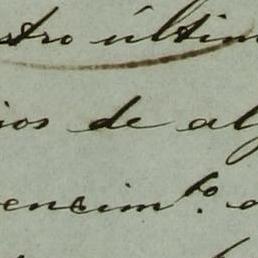 stro últim
ios de al
encim.to